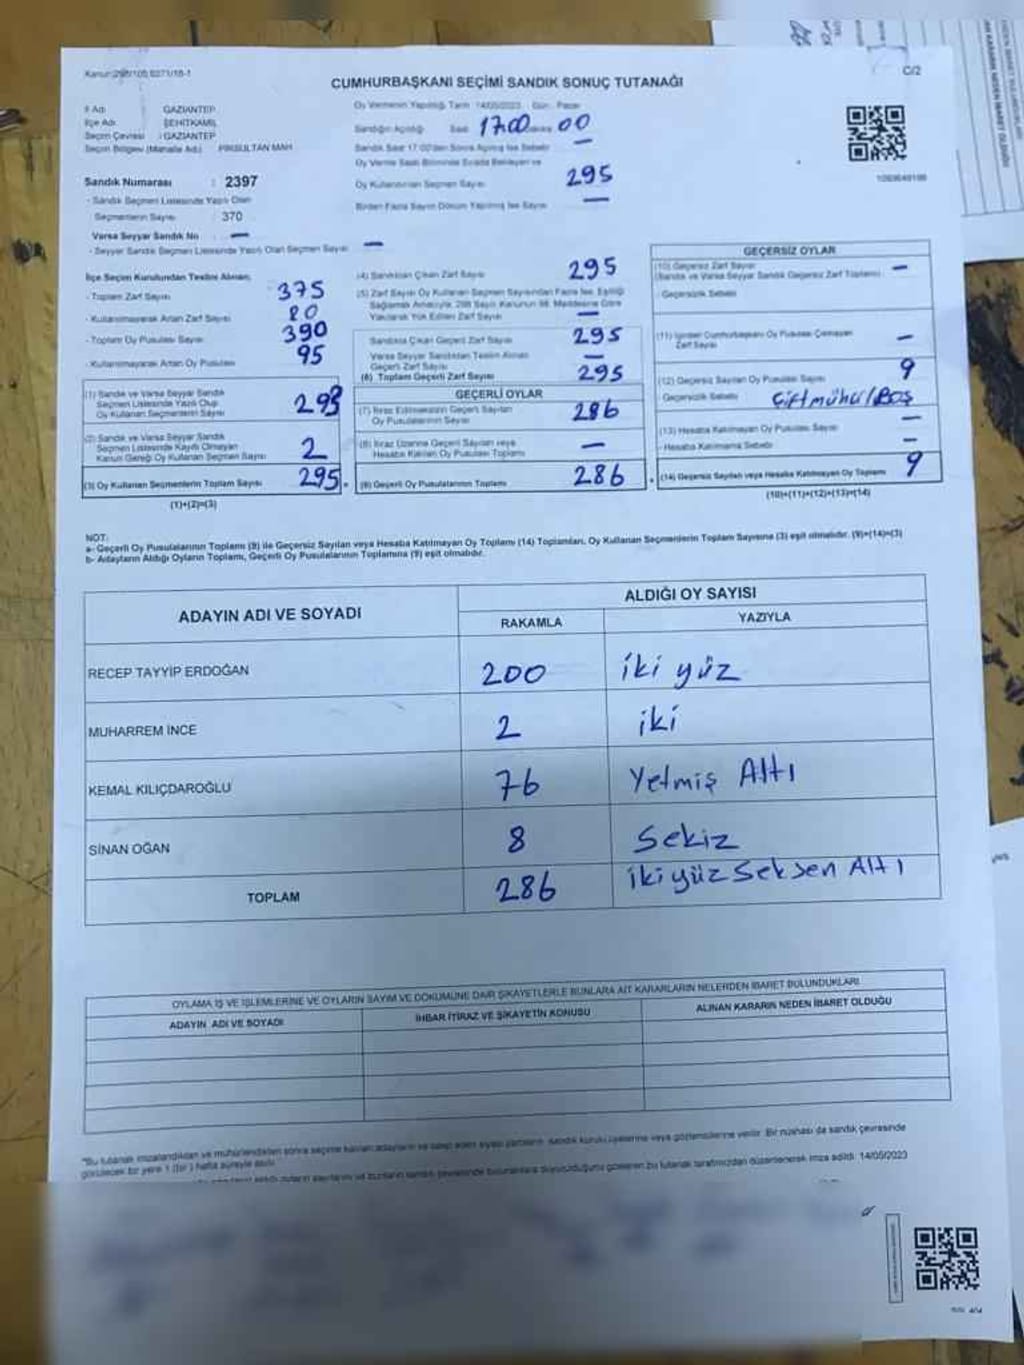 Kanun:298/105,6271/18-1
C/2
CUMHURBAŞKANI SEÇİMİ SANDIK SONUÇ TUTANAĞI
İl Adı : GAZİANTEP
İlçe Adı : ŞEHİTKAMİL
Seçim Çevresi : GAZİANTEP
Seçim Bölgesi (Mahalle Adı) : PİRSULTAN MAH
Oy Vermenin Yapıldığı Tarih : 14/05/2023 Gün : Pazar
Sandığın Açıldığı Saat 17.00 00
Sandık Saat 17:00'den Sonra Açılmış İse Sebebi —
Oy Verme Saati Bitiminde Sırada Bekleyen ve
Oy Kullandırılan Seçmen Sayısı 295
Birden Fazla Sayım Döküm Yapılmış İse Sayısı —
Sandık Numarası : 2397
- Sandık Seçmen Listesinde Yazılı Olan
Seçmenlerin Sayısı : 370
Varsa Seyyar Sandık No : —
- Seyyar Sandık Seçmen Listesinde Yazılı Olan Seçmen Sayısı : —
İlçe Seçim Kurulundan Teslim Alınan;
- Toplam Zarf Sayısı 375
- Kullanılmayarak Artan Zarf Sayısı 80
- Toplam Oy Pusulası Sayısı 390
- Kullanılmayarak Artan Oy Pusulası 95
(1) Sandık ve Varsa Seyyar Sandık
Seçmen Listesinde Yazılı Olup
Oy Kullanan Seçmenlerin Sayısı 293
(2) Sandık ve Varsa Seyyar Sandık
Seçmen Listesinde Kayıtlı Olmayan
Kanun Gereği Oy Kullanan Seçmen Sayısı 2
(3) Oy Kullanan Seçmenlerin Toplam Sayısı 295
(1)+(2)=(3)
(4) Sandıktan Çıkan Zarf Sayısı 295
(5) Zarf Sayısı Oy Kullanan Seçmen Sayısından Fazla İse, Eşitliği
Sağlamak Amacıyla, 298 Sayılı Kanunun 98. Maddesine Göre
Yakılarak Yok Edilen Zarf Sayısı —
Sandıkta Çıkan Geçerli Zarf Sayısı 295
Varsa Seyyar Sandıktan Teslim Alınan
Geçerli Zarf Sayısı —
(6) Toplam Geçerli Zarf Sayısı 295
GEÇERLİ OYLAR
(7) İtiraz Edilmeksizin Geçerli Sayılan
Oy Pusulalarının Sayısı 286
(8) İtiraz Üzerine Geçerli Sayılan veya
Hesaba Katılan Oy Pusulası Toplamı —
(9) Geçerli Oy Pusulalarının Toplamı 286
GEÇERSİZ OYLAR
(10) Geçersiz Zarf Sayısı
(Sandık ve Varsa Seyyar Sandık Geçersiz Zarf Toplamı) —
Geçersizlik Sebebi
(11) İçinden Cumhurbaşkanı Oy Pusulası Çıkmayan
Zarf Sayısı —
(12) Geçersiz Sayılan Oy Pusulası Sayısı 9
Geçersizlik Sebebi Çift mühür/Boş
(13) Hesaba Katılmayan Oy Pusulası Sayısı —
Hesaba Katılmama Sebebi —
(14) Geçersiz Sayılan veya Hesaba Katılmayan Oy Toplamı 9
(10)+(11)+(12)+(13)=(14)
NOT:
a- Geçerli Oy Pusulalarının Toplamı (9) ile Geçersiz Sayılan veya Hesaba Katılmayan Oy Toplamı (14) Toplamları, Oy Kullanan Seçmenlerin Toplam Sayısına (3) eşit olmalıdır. (9)+(14)=(3)
b- Adayların Aldığı Oyların Toplamı, Geçerli Oy Pusulalarının Toplamına (9) eşit olmalıdır.
ADAYIN ADI VE SOYADI
ALDIĞI OY SAYISI
RAKAMLA YAZIYLA
RECEP TAYYİP ERDOĞAN 200 iki yüz
MUHARREM İNCE 2 iki
KEMAL KILIÇDAROĞLU 76 Yetmiş Altı
SİNAN OĞAN 8 Sekiz
TOPLAM 286 iki yüz Seksen Altı
OYLAMA İŞ VE İŞLEMLERİNE VE OYLARIN SAYIM VE DÖKÜMÜNE DAİR ŞİKAYETLERLE BUNLARA AİT KARARLARIN NELERDEN İBARET BULUNDUKLARI
ADAYIN ADI VE SOYADI
İHBAR İTİRAZ VE ŞİKAYETİN KONUSU
ALINAN KARARIN NEDEN İBARET OLDUĞU
"Bu tutanak imzalandıktan ve mühürlendikten sonra seçime katılan adayların ve talep eden siyasi partilerin sandık kurulu üyelerine veya gözlemcilerine verilir. Bir nüshası da sandık çevresinde
görülecek bir yere 1 (bir) hafta süreyle asılır.
bu tutanak tarafımızdan düzenlenerek imza edildi. 14/05/2023